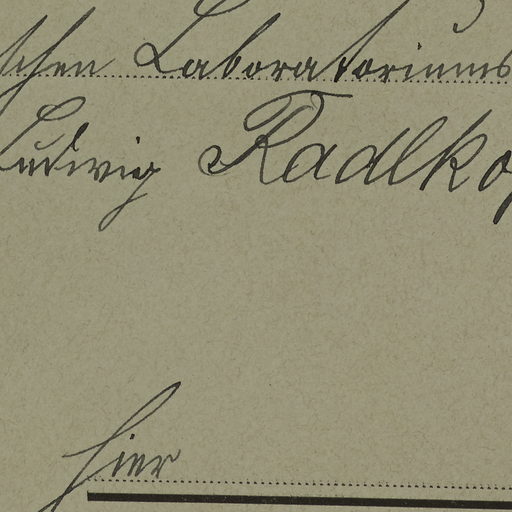 schen Laboratoriums
Ludwig Radlko
hier